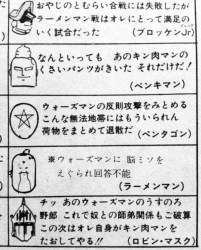 おやじのとむらい合戦には失敗したが
ラーメンマン戦はオレにとって満足の
いく試合だった (ブロッケンJr)
なんといっても あのキン肉マンの
くさいパンツがきいた それだけだ!
(ベンキマン)
ウォーズマンの反則攻撃をみとめる
こんな無法地帯にはもういられん
荷物をまとめて退散だ (ペンタゴン)
※ウォーズマンに 脳ミソを
えぐられ回答不能
(ラーメンマン)
チッ あのウォーズマンのうすのろ
野郎 これで奴との師弟関係もご破算
この次はオレ自身がキン肉マンを
たおしてやる!! (ロビン・マスク)